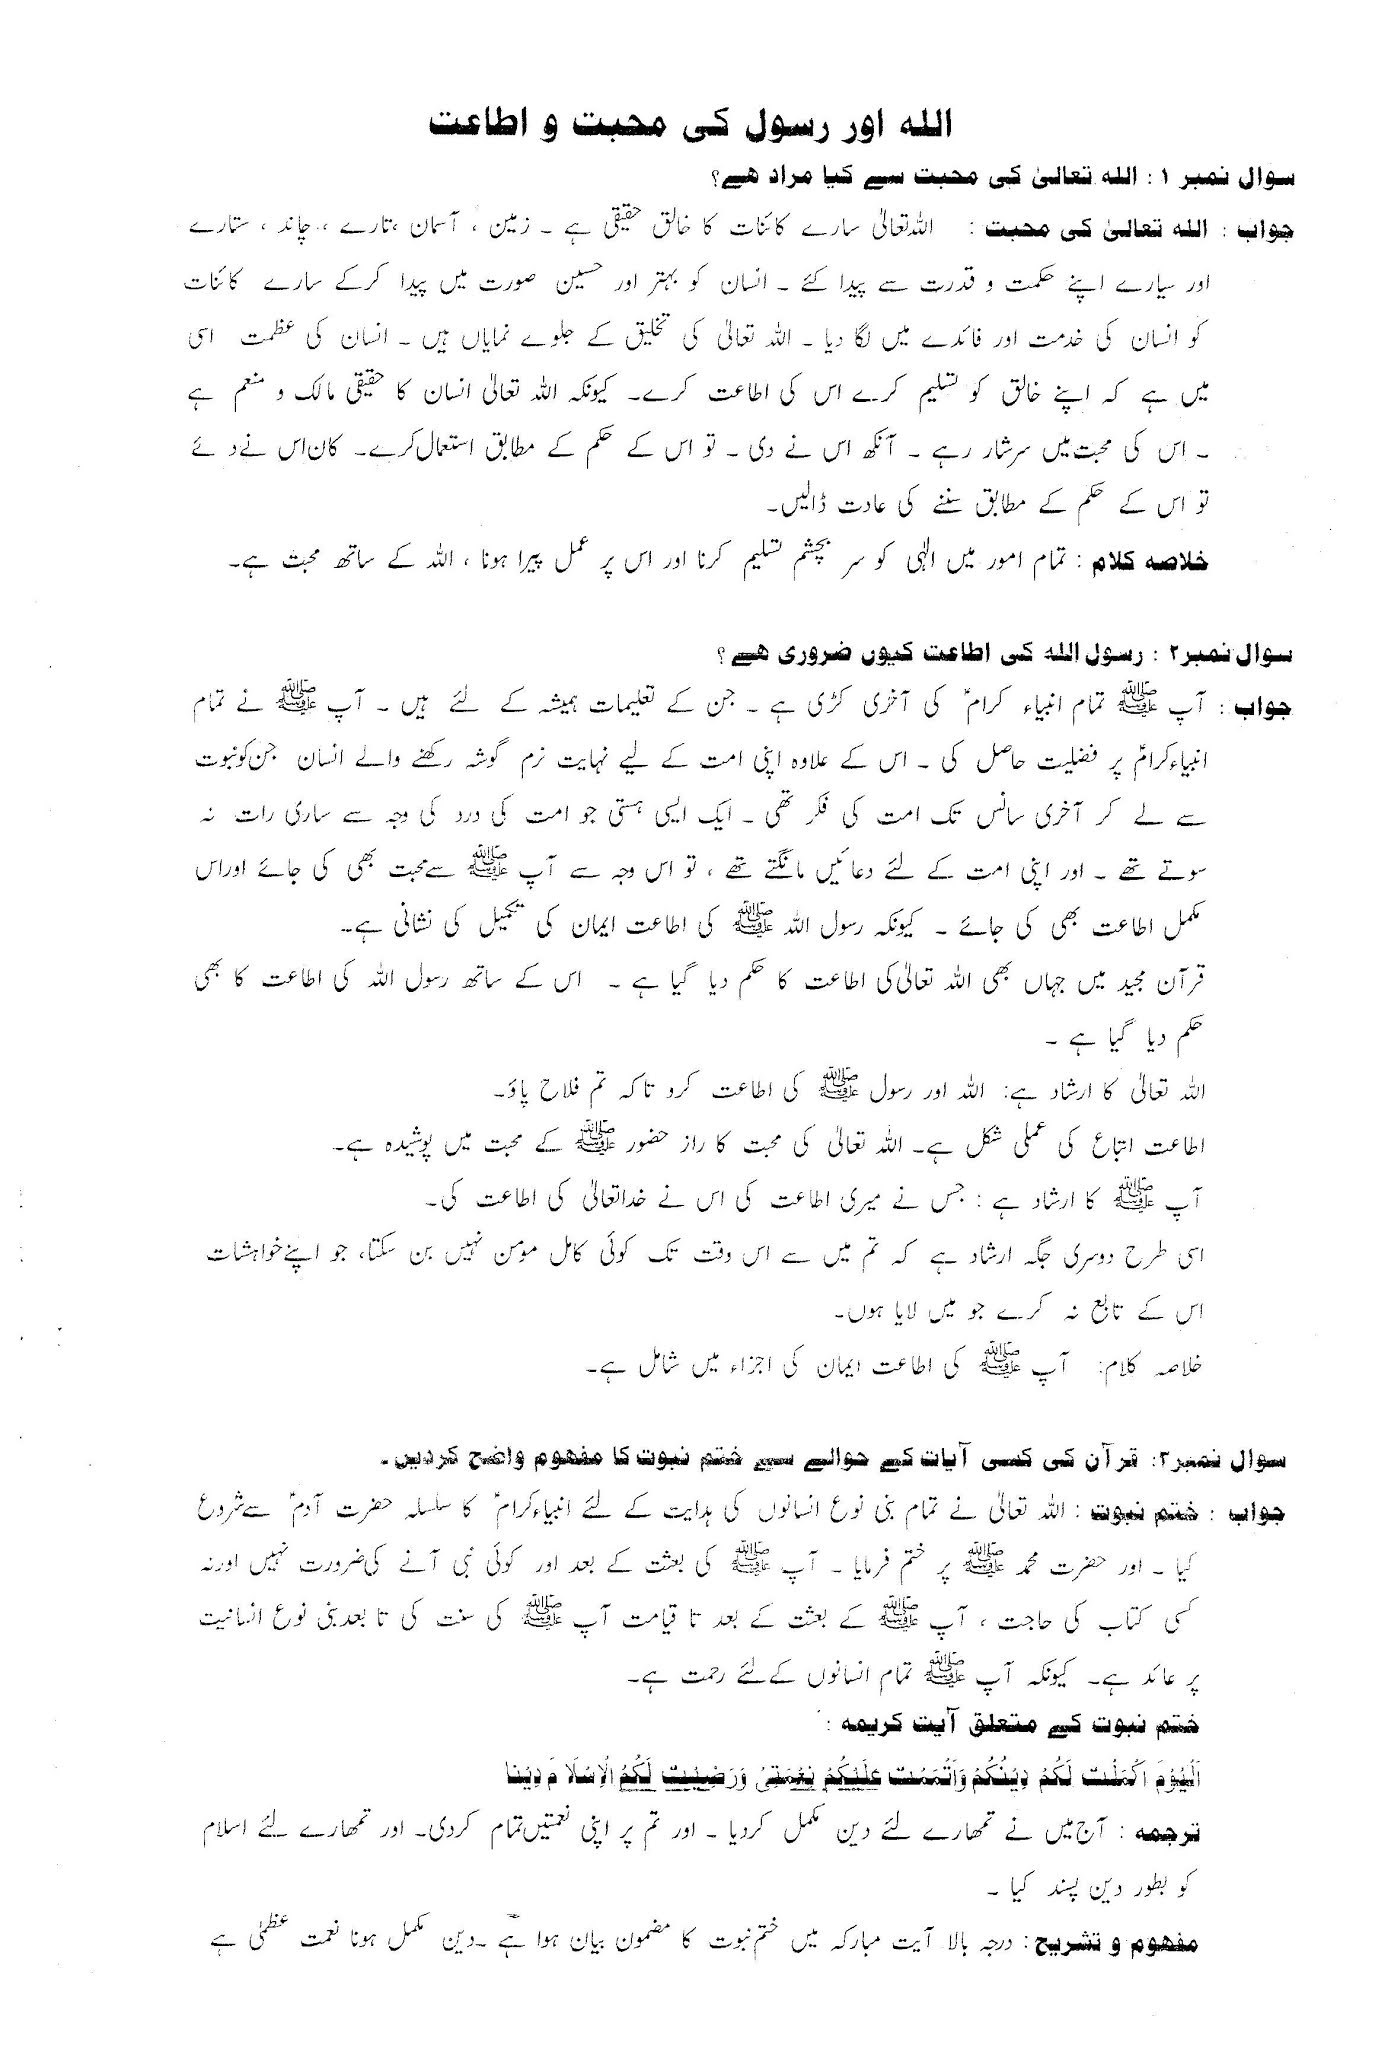 الله اور رسول کی محبت و اطاعت
سوال نمبر ۱ : الله تعالیٰ کی محبت سے کیا مراد ھے؟
جواب : الله تعالیٰ کی محبت : اللہ تعالیٰ سارے کائنات کا خالق حقیقی ہے ۔ زمین ، آسمان ،تارے ، چاند ، ستارے
اور سیارے اپنے حکمت و قدرت سے پیدا کئے ۔ انسان کو بہتر اور حسین صورت میں پیدا کرکے سارے کائنات
کو انسان کی خدمت اور فائدے میں لگا دیا ۔ اللہ تعالیٰ کی تخلیق کے جلوے نمایاں ہیں ۔ انسان کی عظمت اسی
میں ہے کہ اپنے خالق کو تسلیم کرے اس کی اطاعت کرے۔ کیونکہ اللہ تعالیٰ انسان کا حقیقی مالک و منعم ہے
۔ اس کی محبت میں سرشار رہے ۔ آنکھ اس نے دی ۔ تو اس کے حکم کے مطابق استعمال کرے۔ کان اس نے دئے
تو اس کے حکم کے مطابق سننے کی عادت ڈالیں۔
خلاصه کلام : تمام امور میں الٰہی کو سر بچشم تسلیم کرنا اور اس پر عمل پیرا ہونا ، اللہ کے ساتھ محبت ہے۔
سوال نمبر۲ : رسول الله کی اطاعت کیوں ضروری ھے؟
جواب : آپ ﷺ تمام انبیاء کرامؑ کی آخری کڑی ہے ۔ جن کے تعلیمات ہمیشہ کے لئے ہیں ۔ آپ ﷺ نے تمام
انبیاء کرامؑ پر فضلیت حاصل کی ۔ اس کے علاوہ اپنی امت کے لیے نہایت نرم گوشہ رکھنے والے انسان جن کو نبوت
سے لے کر آخری سانس تک امت کی فکر تھی ۔ ایک ایسی ہستی جو امت کی درد کی وجہ سے ساری رات نہ
سوتے تھے ۔ اور اپنی امت کے لئے دعائیں مانگتے تھے ، تو اس وجہ سے آپ ﷺ سے محبت بھی کی جائے اوراس
مکمل اطاعت بھی کی جائے ۔ کیونکہ رسول اللہ ﷺ کی اطاعت ایمان کی تکمیل کی نشانی ہے۔
قرآن مجید میں جہاں بھی اللہ تعالیٰ کی اطاعت کا حکم دیا گیا ہے ۔ اس کے ساتھ رسول اللہ کی اطاعت کا بھی
حکم دیا گیا ہے ۔
اللہ تعالیٰ کا ارشاد ہے: اللہ اور رسول ﷺ کی اطاعت کرو تاکہ تم فلاح پاؤ۔
اطاعت اتباع کی عملی شکل ہے۔ اللہ تعالیٰ کی محبت کا راز حضور ﷺ کے محبت میں پوشیدہ ہے۔
آپ ﷺ کا ارشاد ہے : جس نے میری اطاعت کی اس نے خدا تعالیٰ کی اطاعت کی۔
اسی طرح دوسری جگہ ارشاد ہے کہ تم میں سے اس وقت تک کوئی کامل مومن نہیں بن سکتا، جو اپنے خواہشات
اس کے تابع نہ کرے جو میں لایا ہوں۔
خلاصہ کلام: آپ ﷺ کی اطاعت ایمان کی اجزاء میں شامل ہے۔
سوال نمبر۳: قرآن کی کسی آیات کے حوالے سے ختم نبوت کا مفھوم واضح کردیں۔
جواب : ختم نبوت : اللہ تعالیٰ نے تمام بنی نوع انسانوں کی ہدایت کے لئے انبیاء کرامؑ کا سلسلہ حضرت آدمؑ سے شروع
کیا ۔ اور حضرت محمد ﷺ پر ختم فرمایا ۔ آپ ﷺ کی بعثت کے بعد اور کوئی نبی آنے کی ضرورت نہیں اور نہ
کسی کتاب کی حاجت ، آپ ﷺ کے بعثت کے بعد تا قیامت آپ ﷺ کی سنت کی تا بعد بنی نوع انسانیت
پر عائد ہے۔ کیونکہ آپ ﷺ تمام انسانوں کے لئے رحمت ہے۔
ختم نبوت کے متعلق آیت کریمه :
اَلْیَوْمَ اَکْمَلْتُ لَکُمْ دِیْنَکُمْ وَاَتْمَمْتُ عَلَیْکُمْ نِعْمَتِیْ وَرَضِیْتُ لَکُمُ الْاِسْلَامَ دِیْنا
ترجمه : آج میں نے تمھارے لئے دین مکمل کردیا ۔ اور تم پر اپنی نعمتیں تمام کردی۔ اور تمھارے لئے اسلام
کو بطور دین پسند کیا ۔
مفھوم و تشریح : درجہ بالا آیت مبارکہ میں ختم نبوت کا مضمون بیان ہوا ہے ۔دین مکمل ہونا نعمت عظمٰی ہے